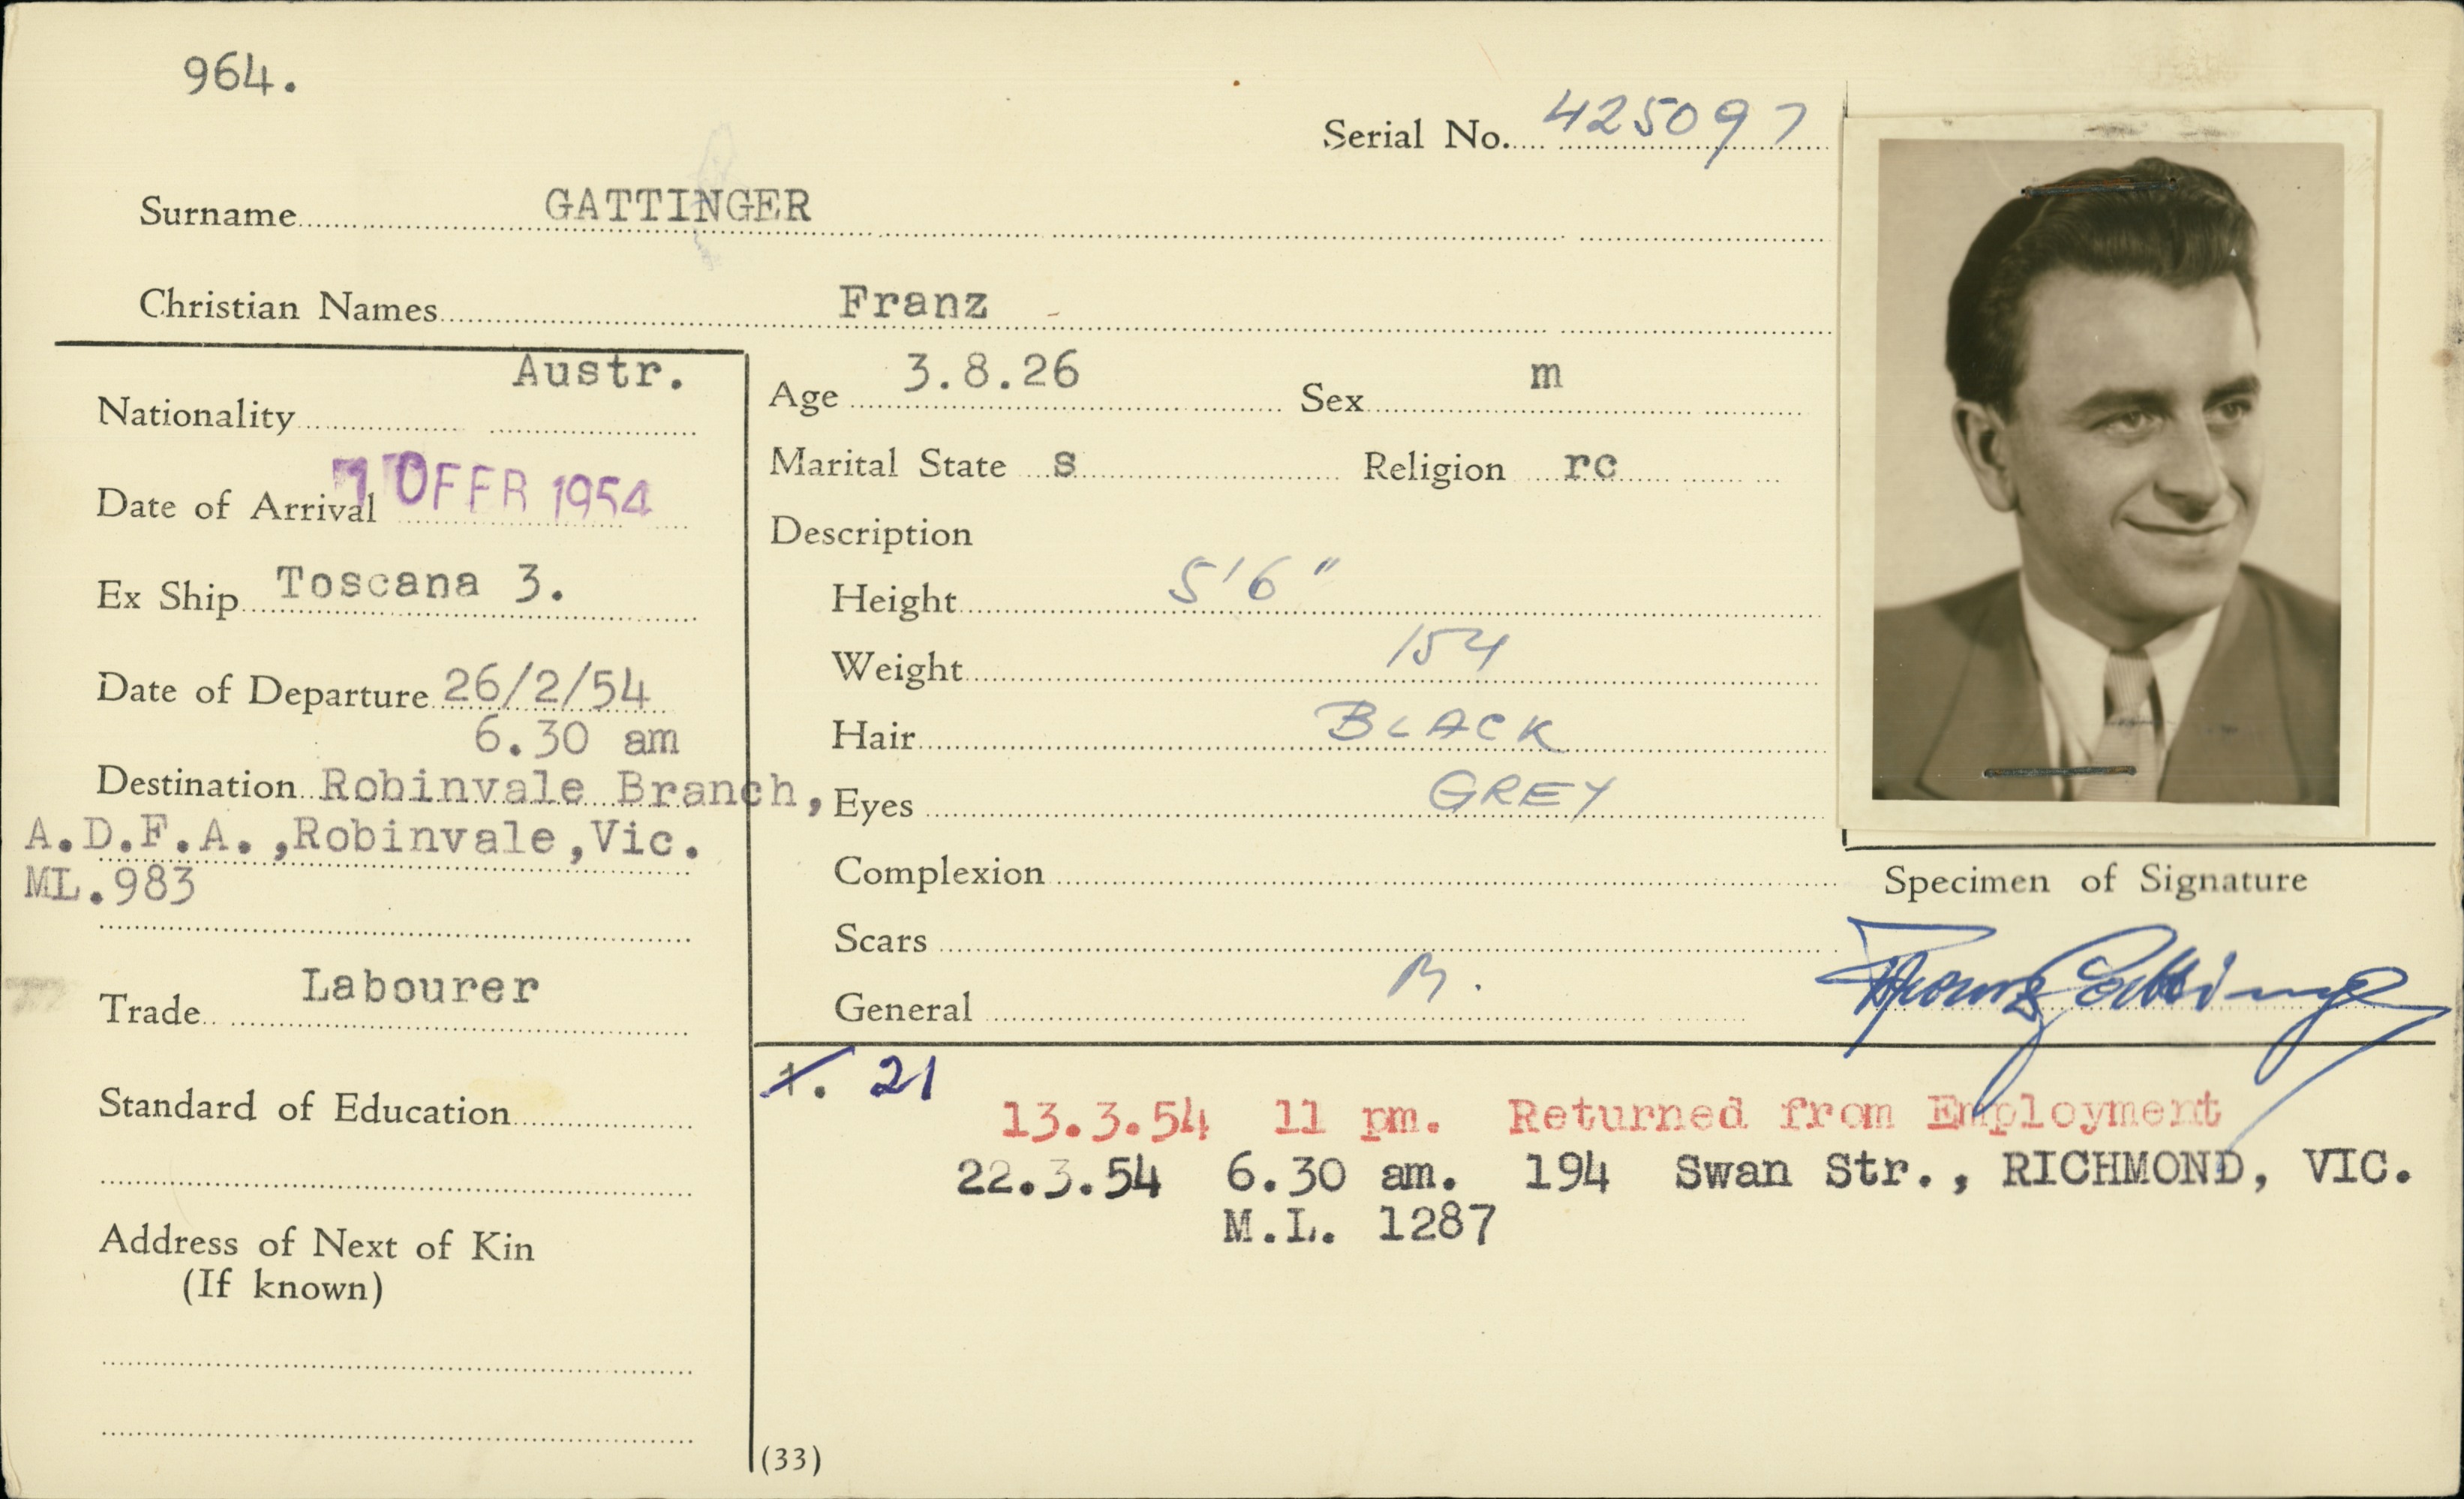 964.
Serial No. 425097
Surname GATTINGER
Christian Names Franz
Nationality Austr.
Date of Arrival 10 FEB 1954
Ex Ship Toscana 3.
Date of Departure 26/2/54
6.30 am
Destination Robinvale Branch,
A.D.F.A.,Robinvale,Vic.
ML.983
Trade Labourer
Standard of Education
Address of Next of Kin
(If known)
Age 3.8.26 Sex m
Marital State s Religion rc
Description
Height 5'6"
Weight 154
Hair BLACK
Eyes GREY
Complexion
Scars
General
Specimen of Signature
Franz Gattinger
1. 21
13.3.54 11 pm. Returned from Employment
22.3.54 6.30 am. 194 Swan Str., RICHMOND, VIC.
M.L. 1287
(33)